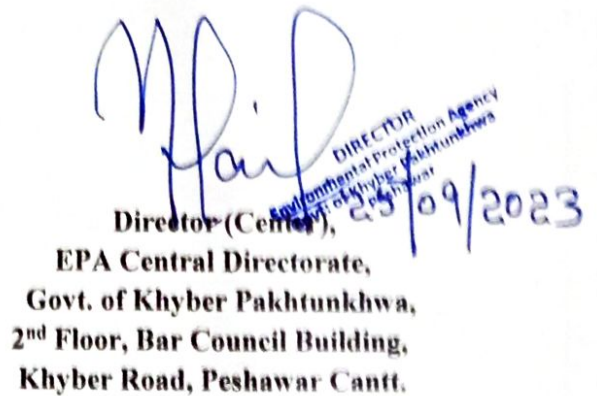 DIRECTOR
Environmental Protection Agency
Govt: of Khyber Pakhtunkhwa
Peshawar
25/09/2023
Director (Center),
EPA Central Directorate,
Govt. of Khyber Pakhtunkhwa,
2nd Floor, Bar Council Building,
Khyber Road, Peshawar Cantt.